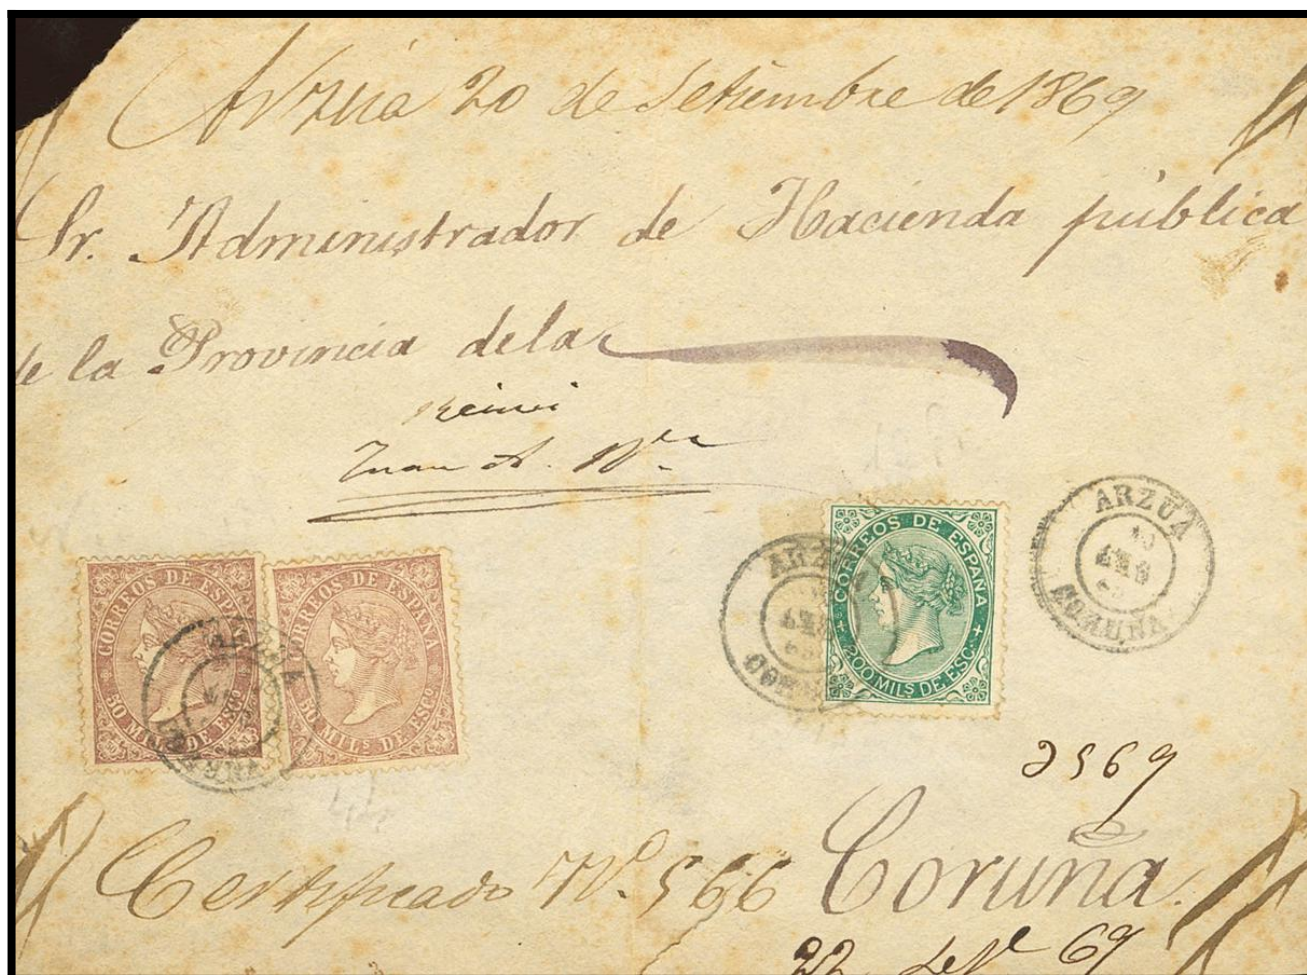 Arzúa 20 de Setiembre de 1869
Sr. Administrador de Hacienda pública
de la Provincia de la
Juan A.
CORREOS DE ESPAÑA
50 MILS DE ESCO
CORREOS DE ESPAÑA
50 MILS DE ESCO
CORREOS DE ESPAÑA
200 MILS DE ESCO
ARZUA
CORUÑA
2569
Certificado Nº. 566 Coruña.
22 Set 69